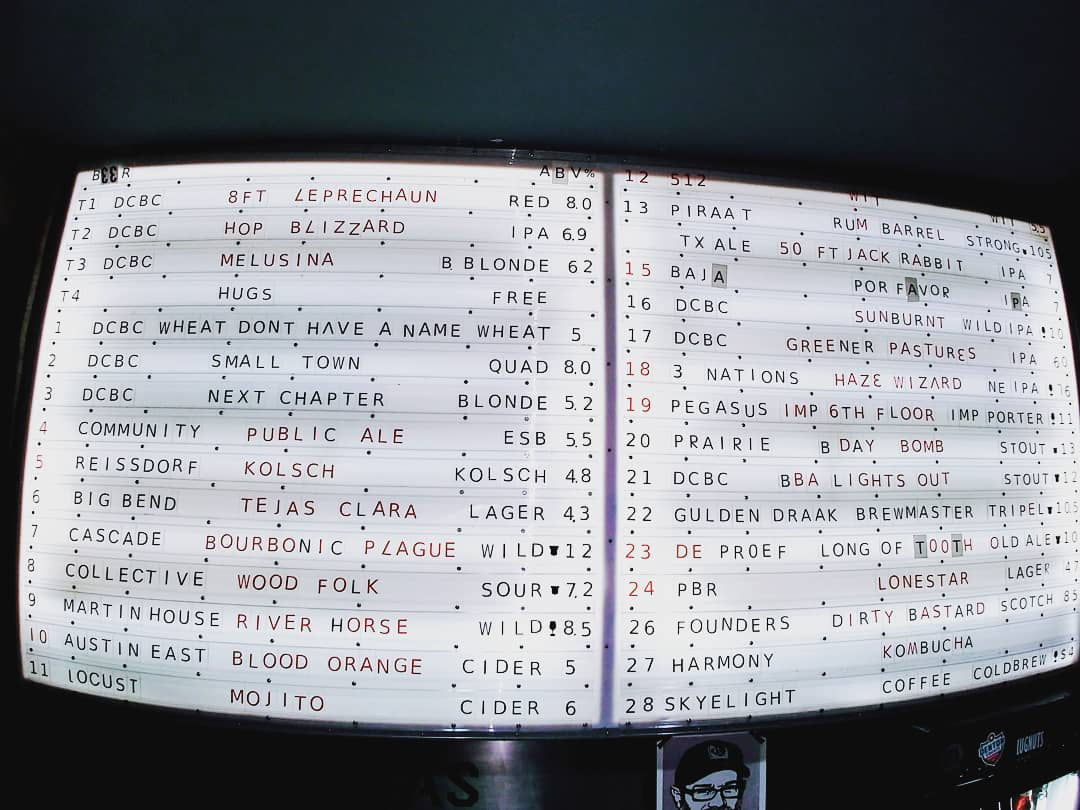 BEER ABV%
T1 DCBC 8FT LEPRECHAUN RED 8.0
T2 DCBC HOP BLIZZARD IPA 6.9
T3 DCBC MELUSINA B. BLONDE 6 2
T4 HUGS FREE
1 DCBC WHEAT DONT HAVE A NAME WHEAT 5
2 DCBC SMALL TOWN QUAD 8.0
3 DCBC NEXT CHAPTER BLONDE 5.2
4 COMMUNITY PUBLIC ALE ESB 5.5
5 REISSDORF KOLSCH KOLSCH 4.8
6 BIG BEND TEJAS CLARA LAGER 4.3
7 CASCADE BOURBONIC PLAGUE WILD 12
8 COLLECTIVE WOOD FOLK SOUR 7.2
9 MARTIN HOUSE RIVER HORSE WILD 8.5
10 AUSTIN EAST BLOOD ORANGE CIDER 5
11 LOCUST MOJITO CIDER 6
12 512 WIT WIT 5.5
13 PIRAAT RUM BARREL STRONG 105
TX ALE 50 FT JACK RABBIT IPA 7
15 BAJA POR FAVOR IPA 7
16 DCBC SUNBURNT WILD IPA 10
17 DCBC GREENER PASTURES IPA 60
18 3 NATIONS HAZE WIZARD NE IPA 16
19 PEGASUS IMP 6TH FLOOR IMP PORTER 11
20 PRAIRIE B DAY BOMB STOUT 13
21 DCBC BBA LIGHTS OUT STOUT 12
22 GULDEN DRAAK BREWMASTER TRIPEL 10.5
23 DE PROEF LONG OF TOOTH OLD ALE 10
24 PBR LONESTAR LAGER 4.7
26 FOUNDERS DIRTY BASTARD SCOTCH 8.5
27 HARMONY KOMBUCHA
28 SKYELIGHT COFFEE COLDBREW $4
AS
LUGNUTS